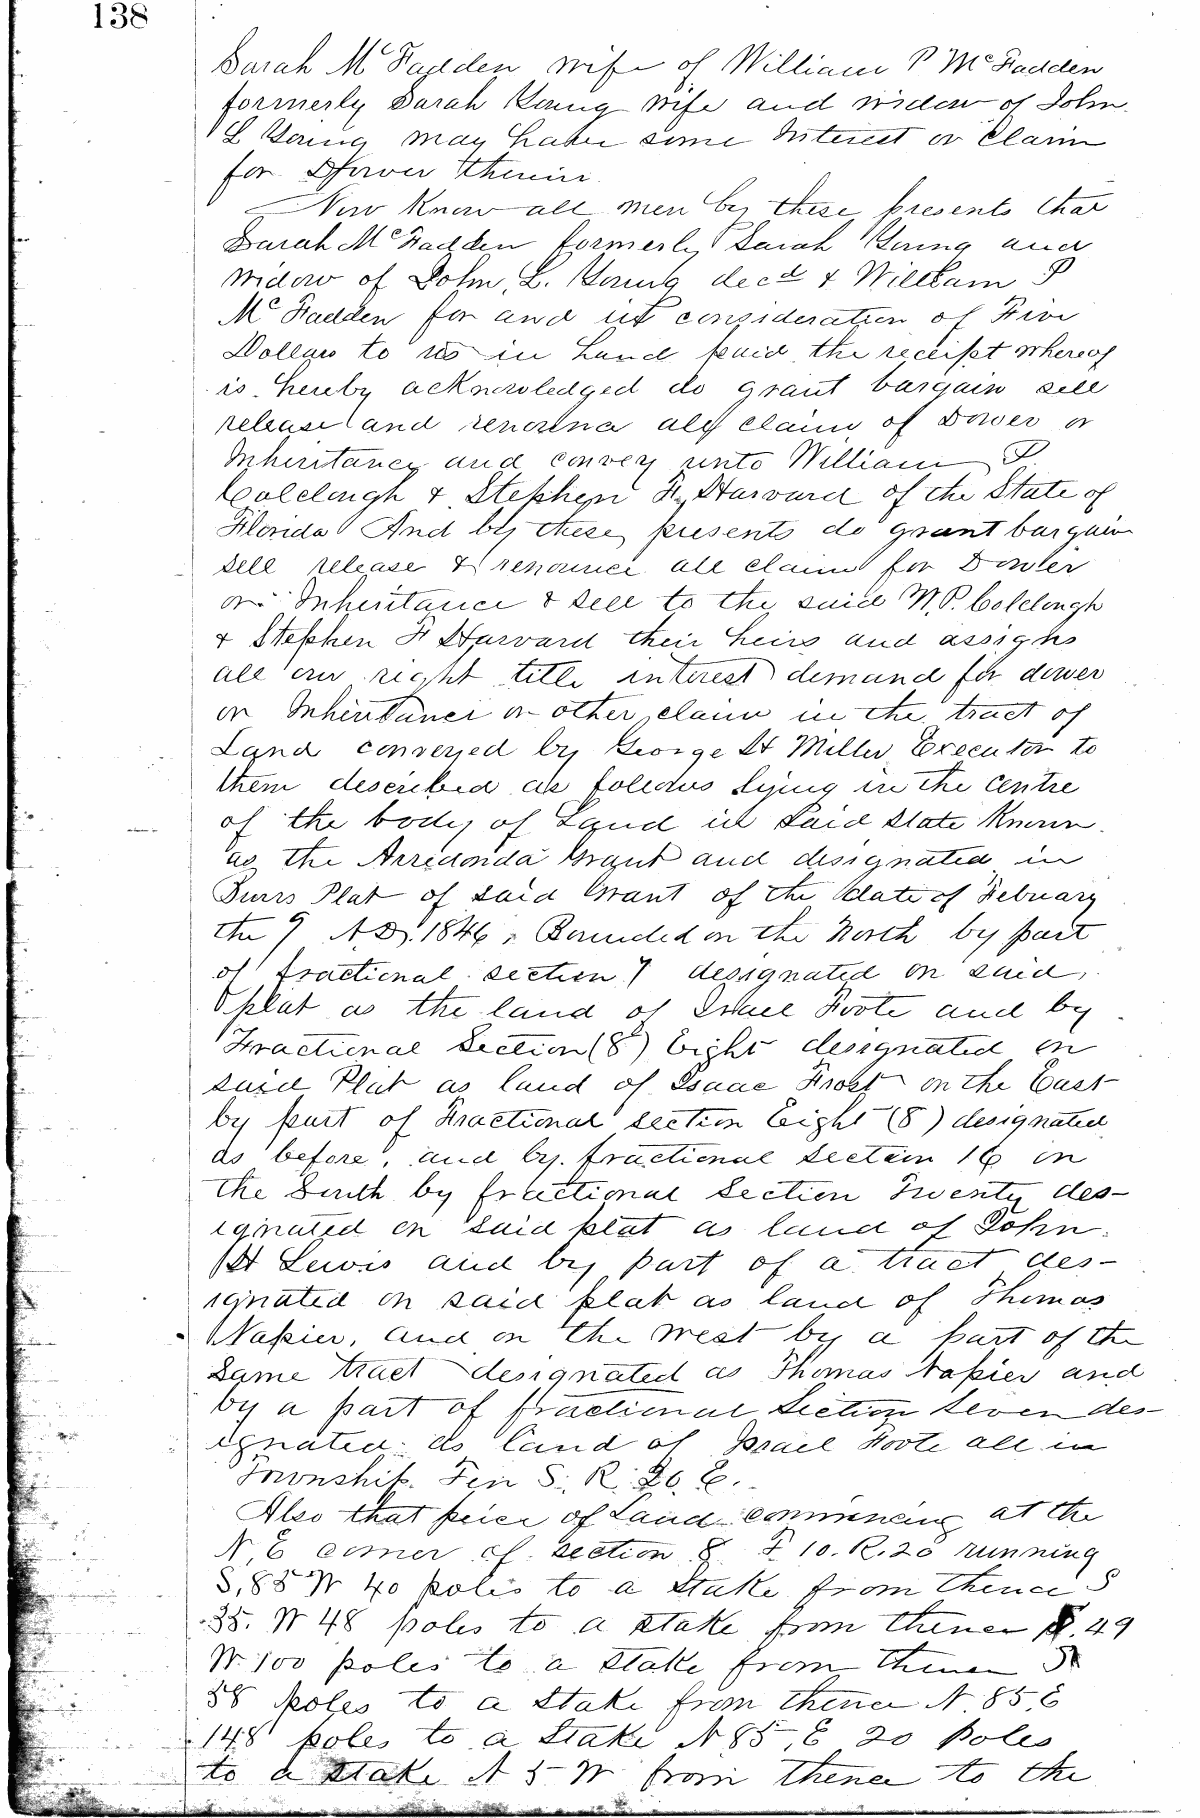 138
Sarah McFadden wife of William P McFadden
formerly Sarah Young wife and widow of John
L Young may have some Interest or Claim
for Dower therein
Now Know all men by these presents that
Sarah McFadden formerly Sarah Young and
widow of John, L. Young decd & William P
McFadden for and in consideration of Five
Dollars to us in hand paid the receipt whereof
is hereby acknowledged do grant bargain sell
release and renounce all claim of Dower or
Inheritance and convey unto William P
Colclough & Stephen F. Harvard of the State of
Florida And by these presents do grant bargain
sell release & renounce all claim for Dower
or Inheritance & sell to the said W.P. Colclough
& Stephen F Harvard their heirs and assigns
all our right title interest demand for dower
or Inheritance or other claim in the tract of
Land conveyed by George H Miller Executor to
them described as follows lying in the centre
of the body of Land in said State Known
as the Arredonda Grant and designated in
Burrs Plat of said Grant of the date of Febuary
the 9 A.D. 1846, Bounded on the North by part
of fractional section 7 designated on said
plat as the land of Israel Foote and by
Fractional Section (8) Eight designated on
said Plat as land of Isaac Frost on the East
by part of Fractional section Eight (8) designated
as before, and by fractional section 16 on
the South by fractional Section Twenty des-
ignated on said plat as land of John
H Lewis and by part of a tract des-
ignated on said plat as land of Thomas
Napier, and on the west by a part of the
same tract designated as Thomas Napier and
by a part of fractional Section Seven des-
ignated as land of Israel Foote all in
Township Ten S. R. 20. E.
Also that peice of Land commencing at the
N, E corner of section 8 T 10. R. 20 running
S, 85 W 40 poles to a Stake from thence S
35. W 48 poles to a stake from thence 49
W. 100 poles to a Stake from thence S
58 poles to a Stake from thence N. 85, E
148 poles to a Stake N 85, E 20 Poles
to a stake N 5 W from thence to the